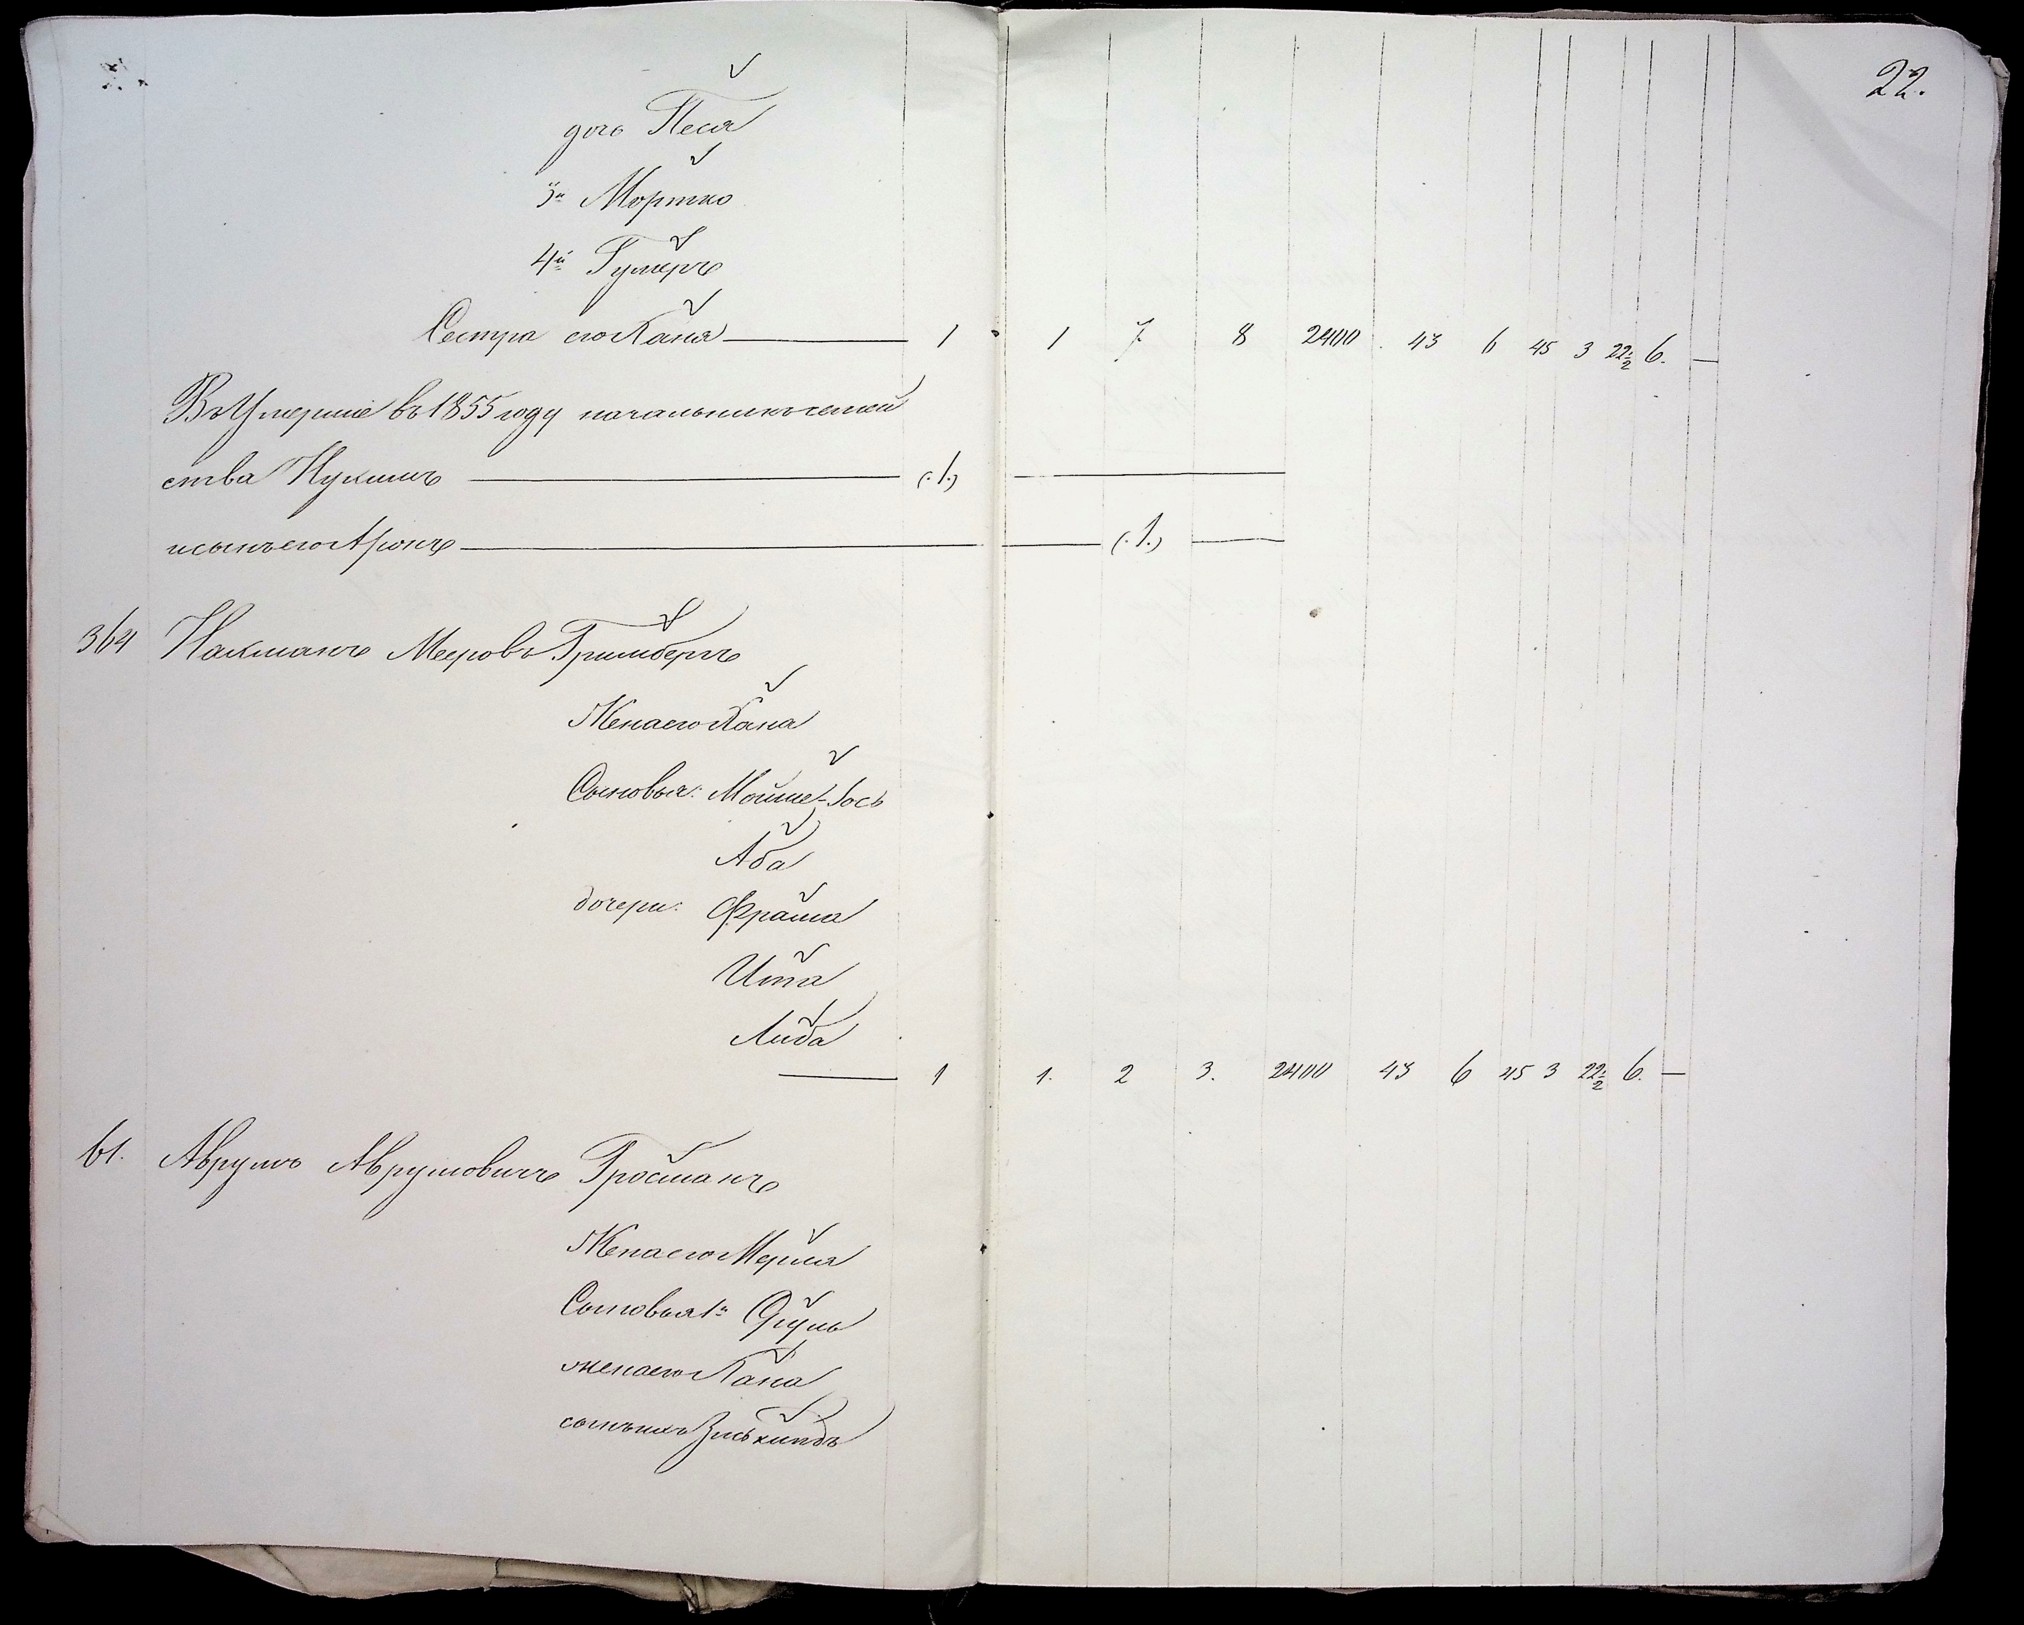 22.
дочь Песя
3й Мортко
4й Гумеръ
Сестра его Ханя 1 1 7 8 2400 43 6 45 3 22 1/2 6. —
Въ Умершіе въ 1855 году начальникъ семей
ства Нухимъ (.1.)
и сынъ его Аронъ (.1.)
364 Нахманъ Меровъ Гримбергъ
Жена его Хана
Сыновья: Мойше-Іось
Аба
дочери: Фрайма
Ита
Либа
1 1. 2 3. 2400 43 6 45 3 22 1/2 6. —
61. Аврумъ Аврумовичъ Гросманъ
Жена его
Сыновья 1й Сруль
жена его Хана
сынъ ихъ Зиськиндъ